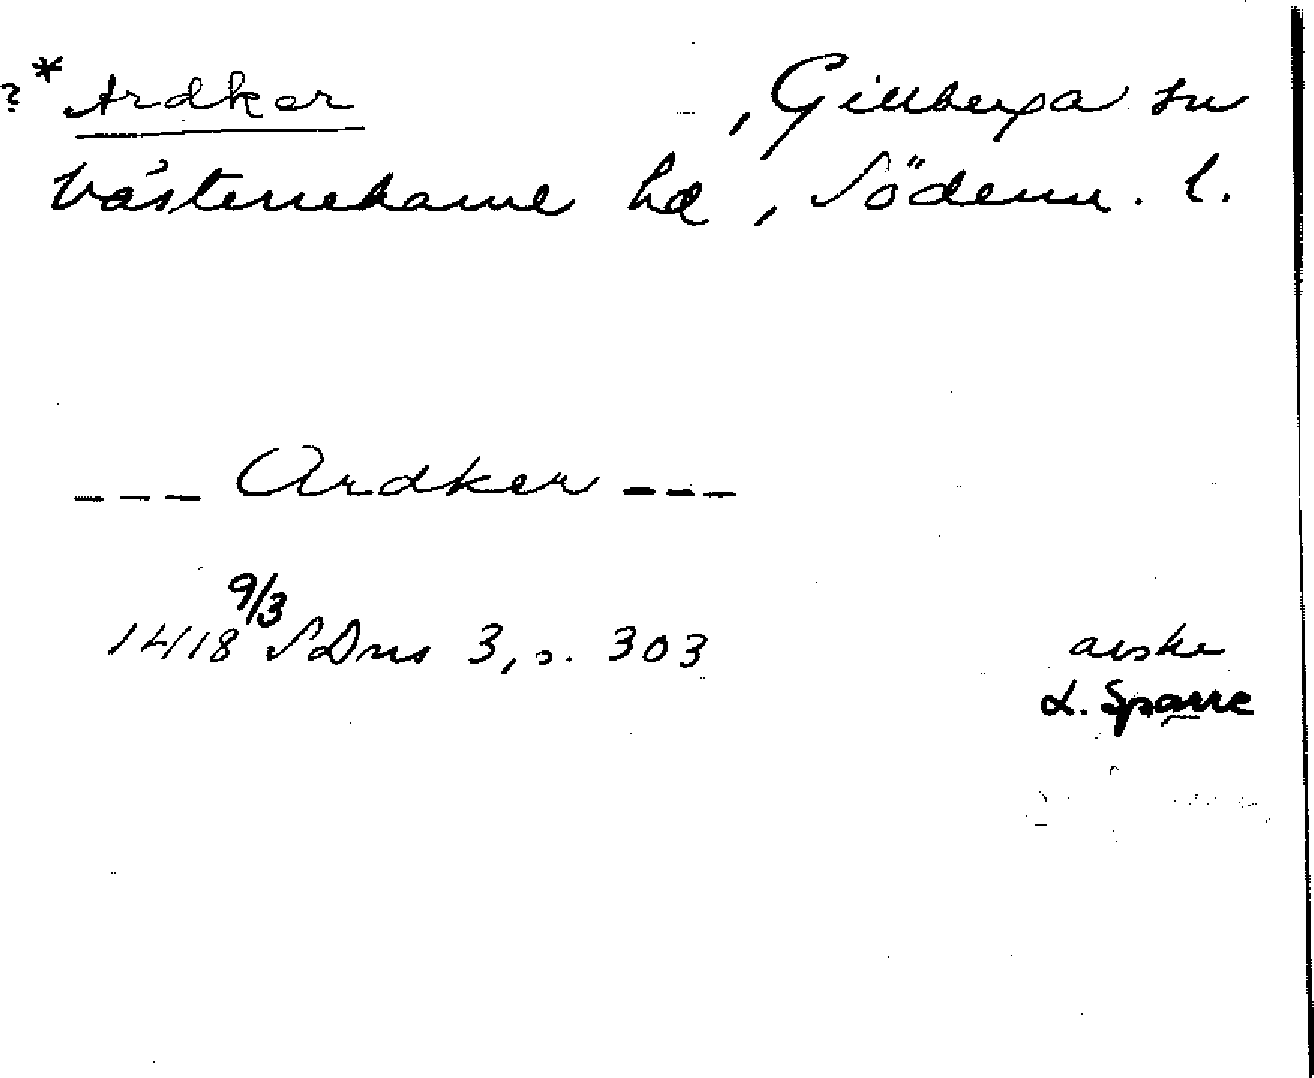 ?*Ardker , Gillberga sn
Västerrekarne hd, Söderm. l.
--- Ardker ---
1418 9/3 SDns 3, s. 303
avskr
L. Sparre